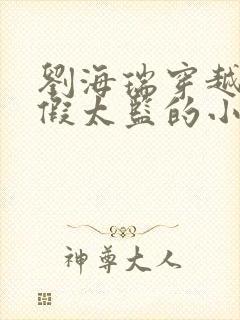 劉海瑞穿越
假太監的小
神尊大人